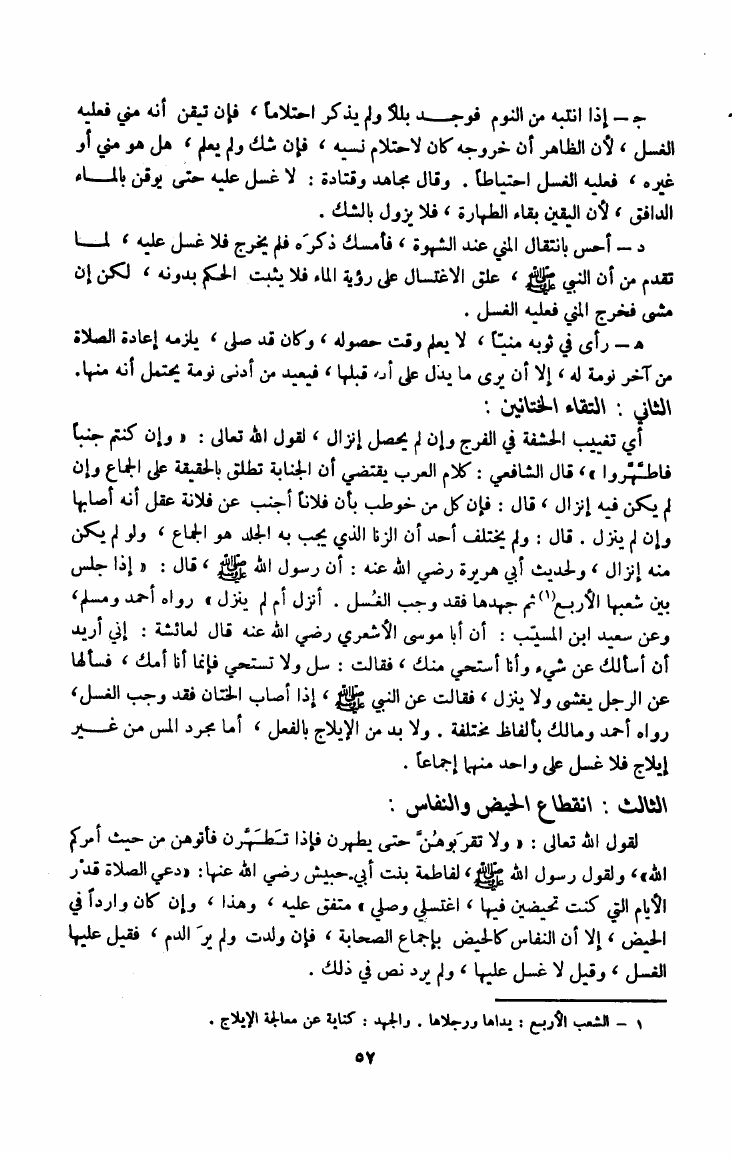 ج – إذا انتبه من النوم فوجد بللاً ولم يذكر احتلاماً ، فإن تيقن أنه مني فعليه
الغسل ، لأن الظاهر أن خروجه كان لاحتلام نسيه ، فإن شك ولم يعلم ، هل هو مني أو
غيره ، فعليه الغسل احتياطاً . وقال مجاهد وقتادة : لا غسل عليه حتى يوقن بالماء
الدافق ، لأن اليقين بقاء الطهارة ، فلا يزول بالشك .
د – أحس بانتقال المني عند الشهوة ، فأمسك ذكرَه فلم يخرج فلا غسل عليه ، لما
تقدم من أن النبي ﷺ ، علق الاغتسال على رؤية الماء فلا يثبت الحكم بدونه ، لكن إن
مشى فخرج المني فعليه الغسل .
ه – رأى في ثوبه منيّاً ، لا يعلم وقت حصوله ، وكان قد صلى ، يلزمه إعادة الصلاة
من آخر نومة له ، إلا أن يرى ما يدل على أنه قبلها ، فيعيد من أدنى نومة يحتمل أنه منها.
الثاني : التقاء الختانين :
أي تغييب الحشفة في الفرج وإن لم يحصل إنزال ، لقول الله تعالى : « وإن كنتم جنباً
فاطَّهَّروا »، قال الشافعي : كلام العرب يقتضي أن الجنابة تطلق بالحقيقة على الجماع وإن
لم يكن فيه إنزال ، قال : فإن كل من خوطب بأن فلاناً أجنب عن فلانة عقل أنه أصابها
وإن لم ينزل . قال : ولم يختلف أحد أن الزنا الذي يجب به الجلد هو الجماع ، ولو لم يكن
منه إنزال ، ولحديث أبي هريرة رضي الله عنه : أن رسول الله ﷺ ، قال : « إذا جلس
بين شعبها الأربع(١) ثم جهدها فقد وجب الغُسل . أنزل أم لم ينزل » رواه أحمد ومسلم،
وعن سعيد ابن المسيّب : أن أبا موسى الأشعري رضي الله عنه قال لعائشة : إني أريد
أن أسألك عن شيء وأنا أستحي منك ، فقالت : سل ولا تستحي فإنما أنا أمك ، فسألها
عن الرجل يغشى ولا ينزل ، فقالت عن النبي ﷺ ، إذا أصاب الختان فقد وجب الغسل،
رواه أحمد ومالك بألفاظ مختلفة . ولا بد من الإيلاج بالفعل ، أما مجرد المس من غير
إيلاج فلا غسل على واحد منهما إجماعاً .
الثالث : انقطاع الحيض والنفاس :
لقول الله تعالى : « ولا تقرَبوهُنَّ حتى يطهرن فإذا تَطَهَّرن فأتوهن من حيث أمركم
الله»، ولقول رسول الله ﷺ، لفاطمة بنت أبي حبيش رضي الله عنها: «دعي الصلاة قدْر
الأيام التي كنت تحيضين فيها ، اغتسلي وصلي » متفق عليه ، وهذا ، وإن كان وارداً في
الحيض ، إلا أن النفاس كالحيض بإجماع الصحابة ، فإن ولدت ولم يرَ الدم ، فقيل عليها
الغسل ، وقيل لا غسل عليها ، ولم يرد نص في ذلك .
١ – الشعب الأربع : يداها ورجلاها . والجهد : كناية عن معالجة الإيلاج .
٥٧